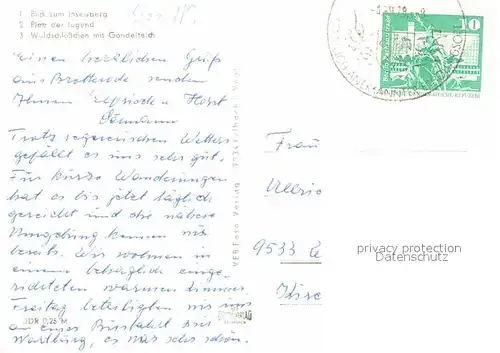 1 Blick zum Inselsberg
2 Platz der Jugend
3 Waldschlößchen mit Gondelteich
Einen herzlichen Gruß
aus Brotterode senden
Ihnen Elfriede u. Horst
Trotz regnerischen Wetters
gefällt es uns sehr gut.
Für kurze Wanderungen
hat es bis jetzt täglich
gereicht und die nähere
Umgebung kennen wir
bereits. Wir wohnen in
einem behaglich einge-
richteten warmen Zimmer.
Freitag beteiligten wir uns
an einer Busfahrt zur
Wartburg, es war sehr schön.
DDR 0,25 M
VEB Foto-Verlag
10
Frau
Ullric
9533
privacy protection
Datenschutz